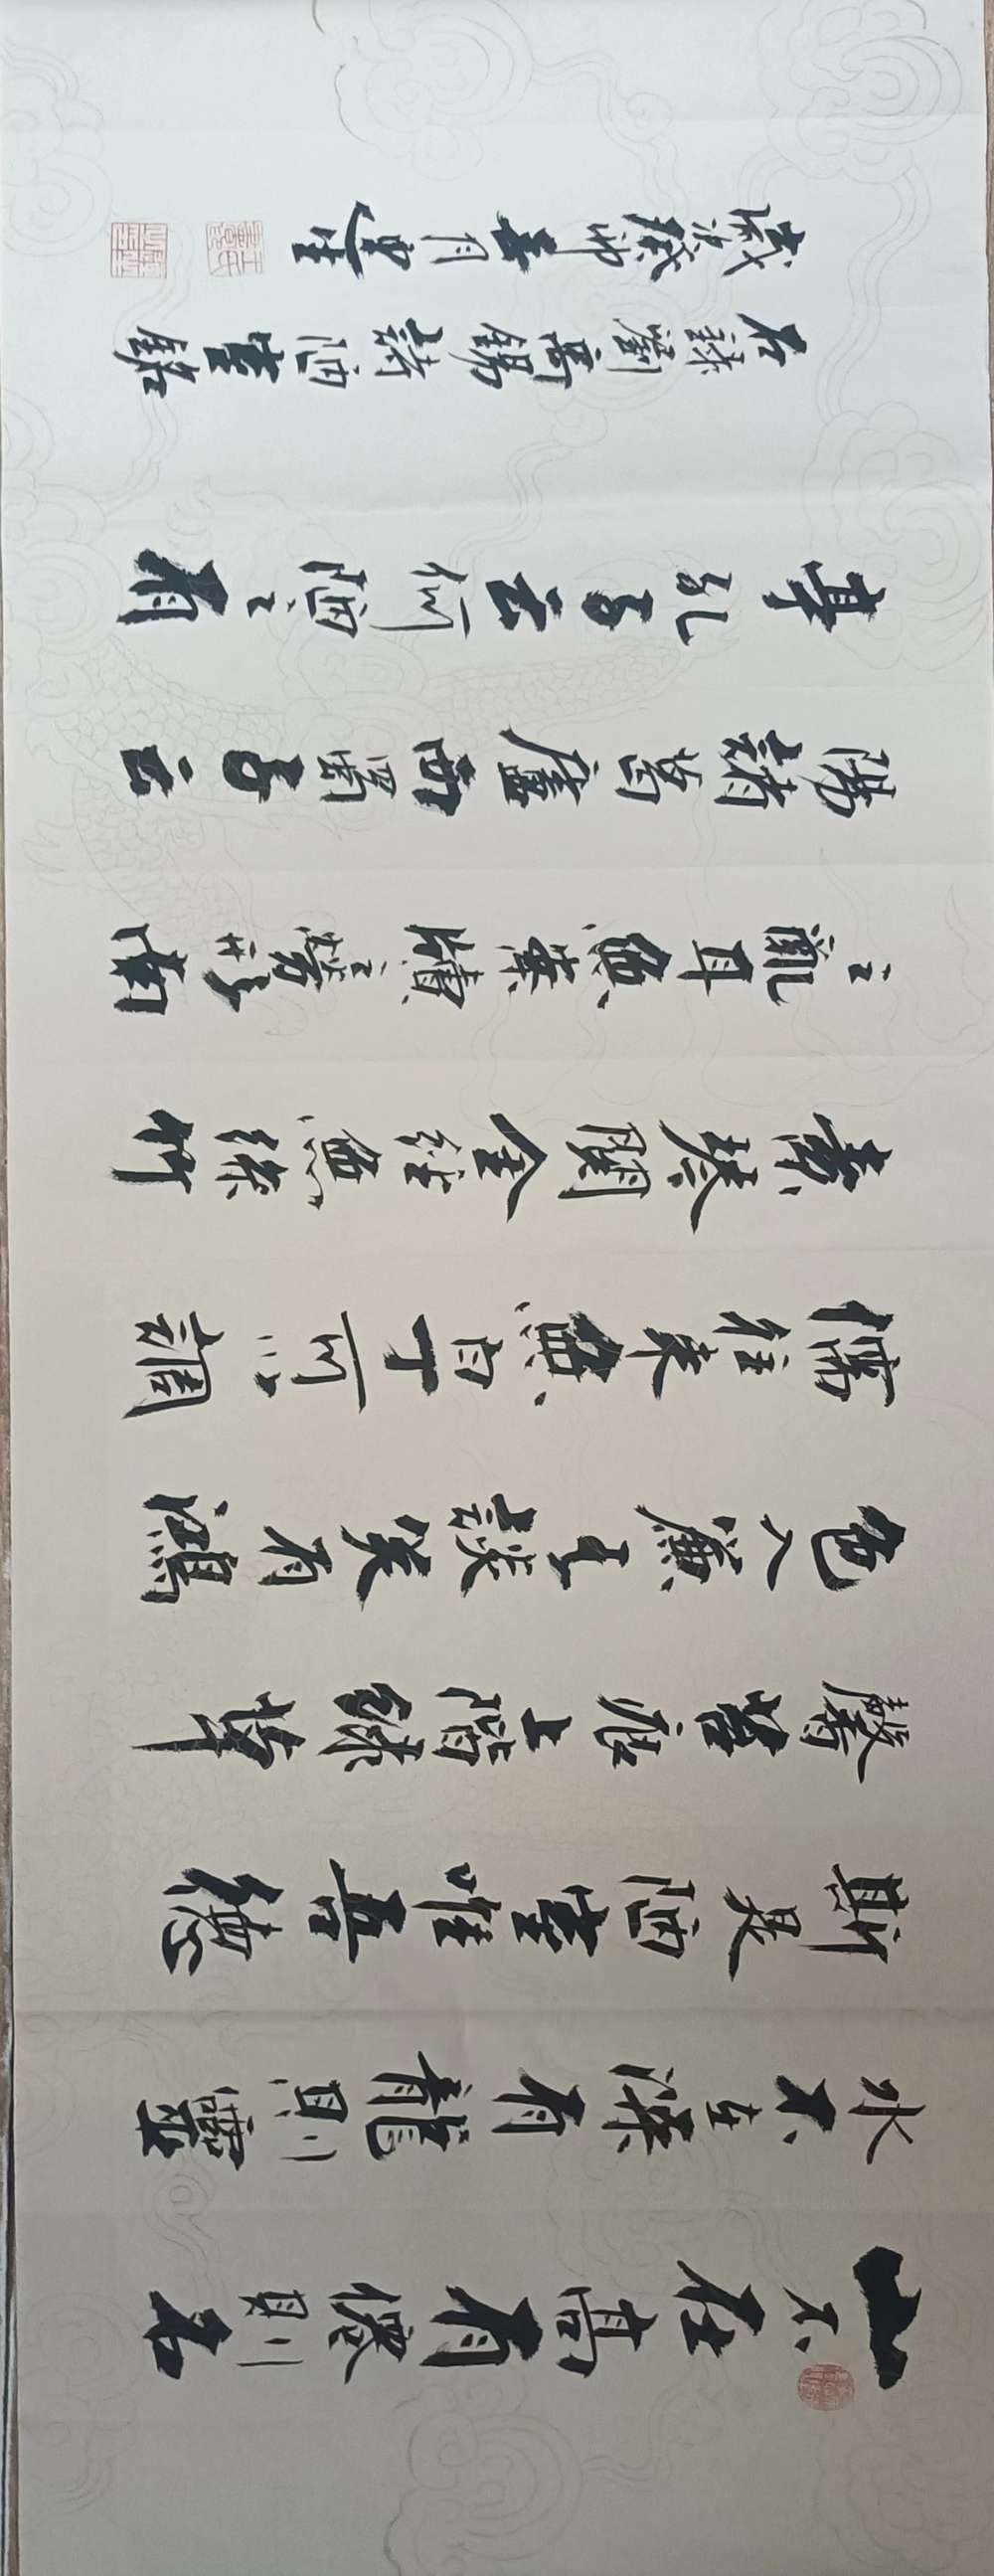 山不在高有僊則名
水不在深有龍則靈
斯是陋室唯吾德
馨苔痕上階綠草
色入簾青談笑有鴻
儒往來無白丁可以調
素琴閱金經無絲竹
之亂耳無案牘之勞形南
陽諸葛廬西蜀子云
亭孔子云何陋之有
右錄劉禹錫詩陋室銘
歲次癸卯春月